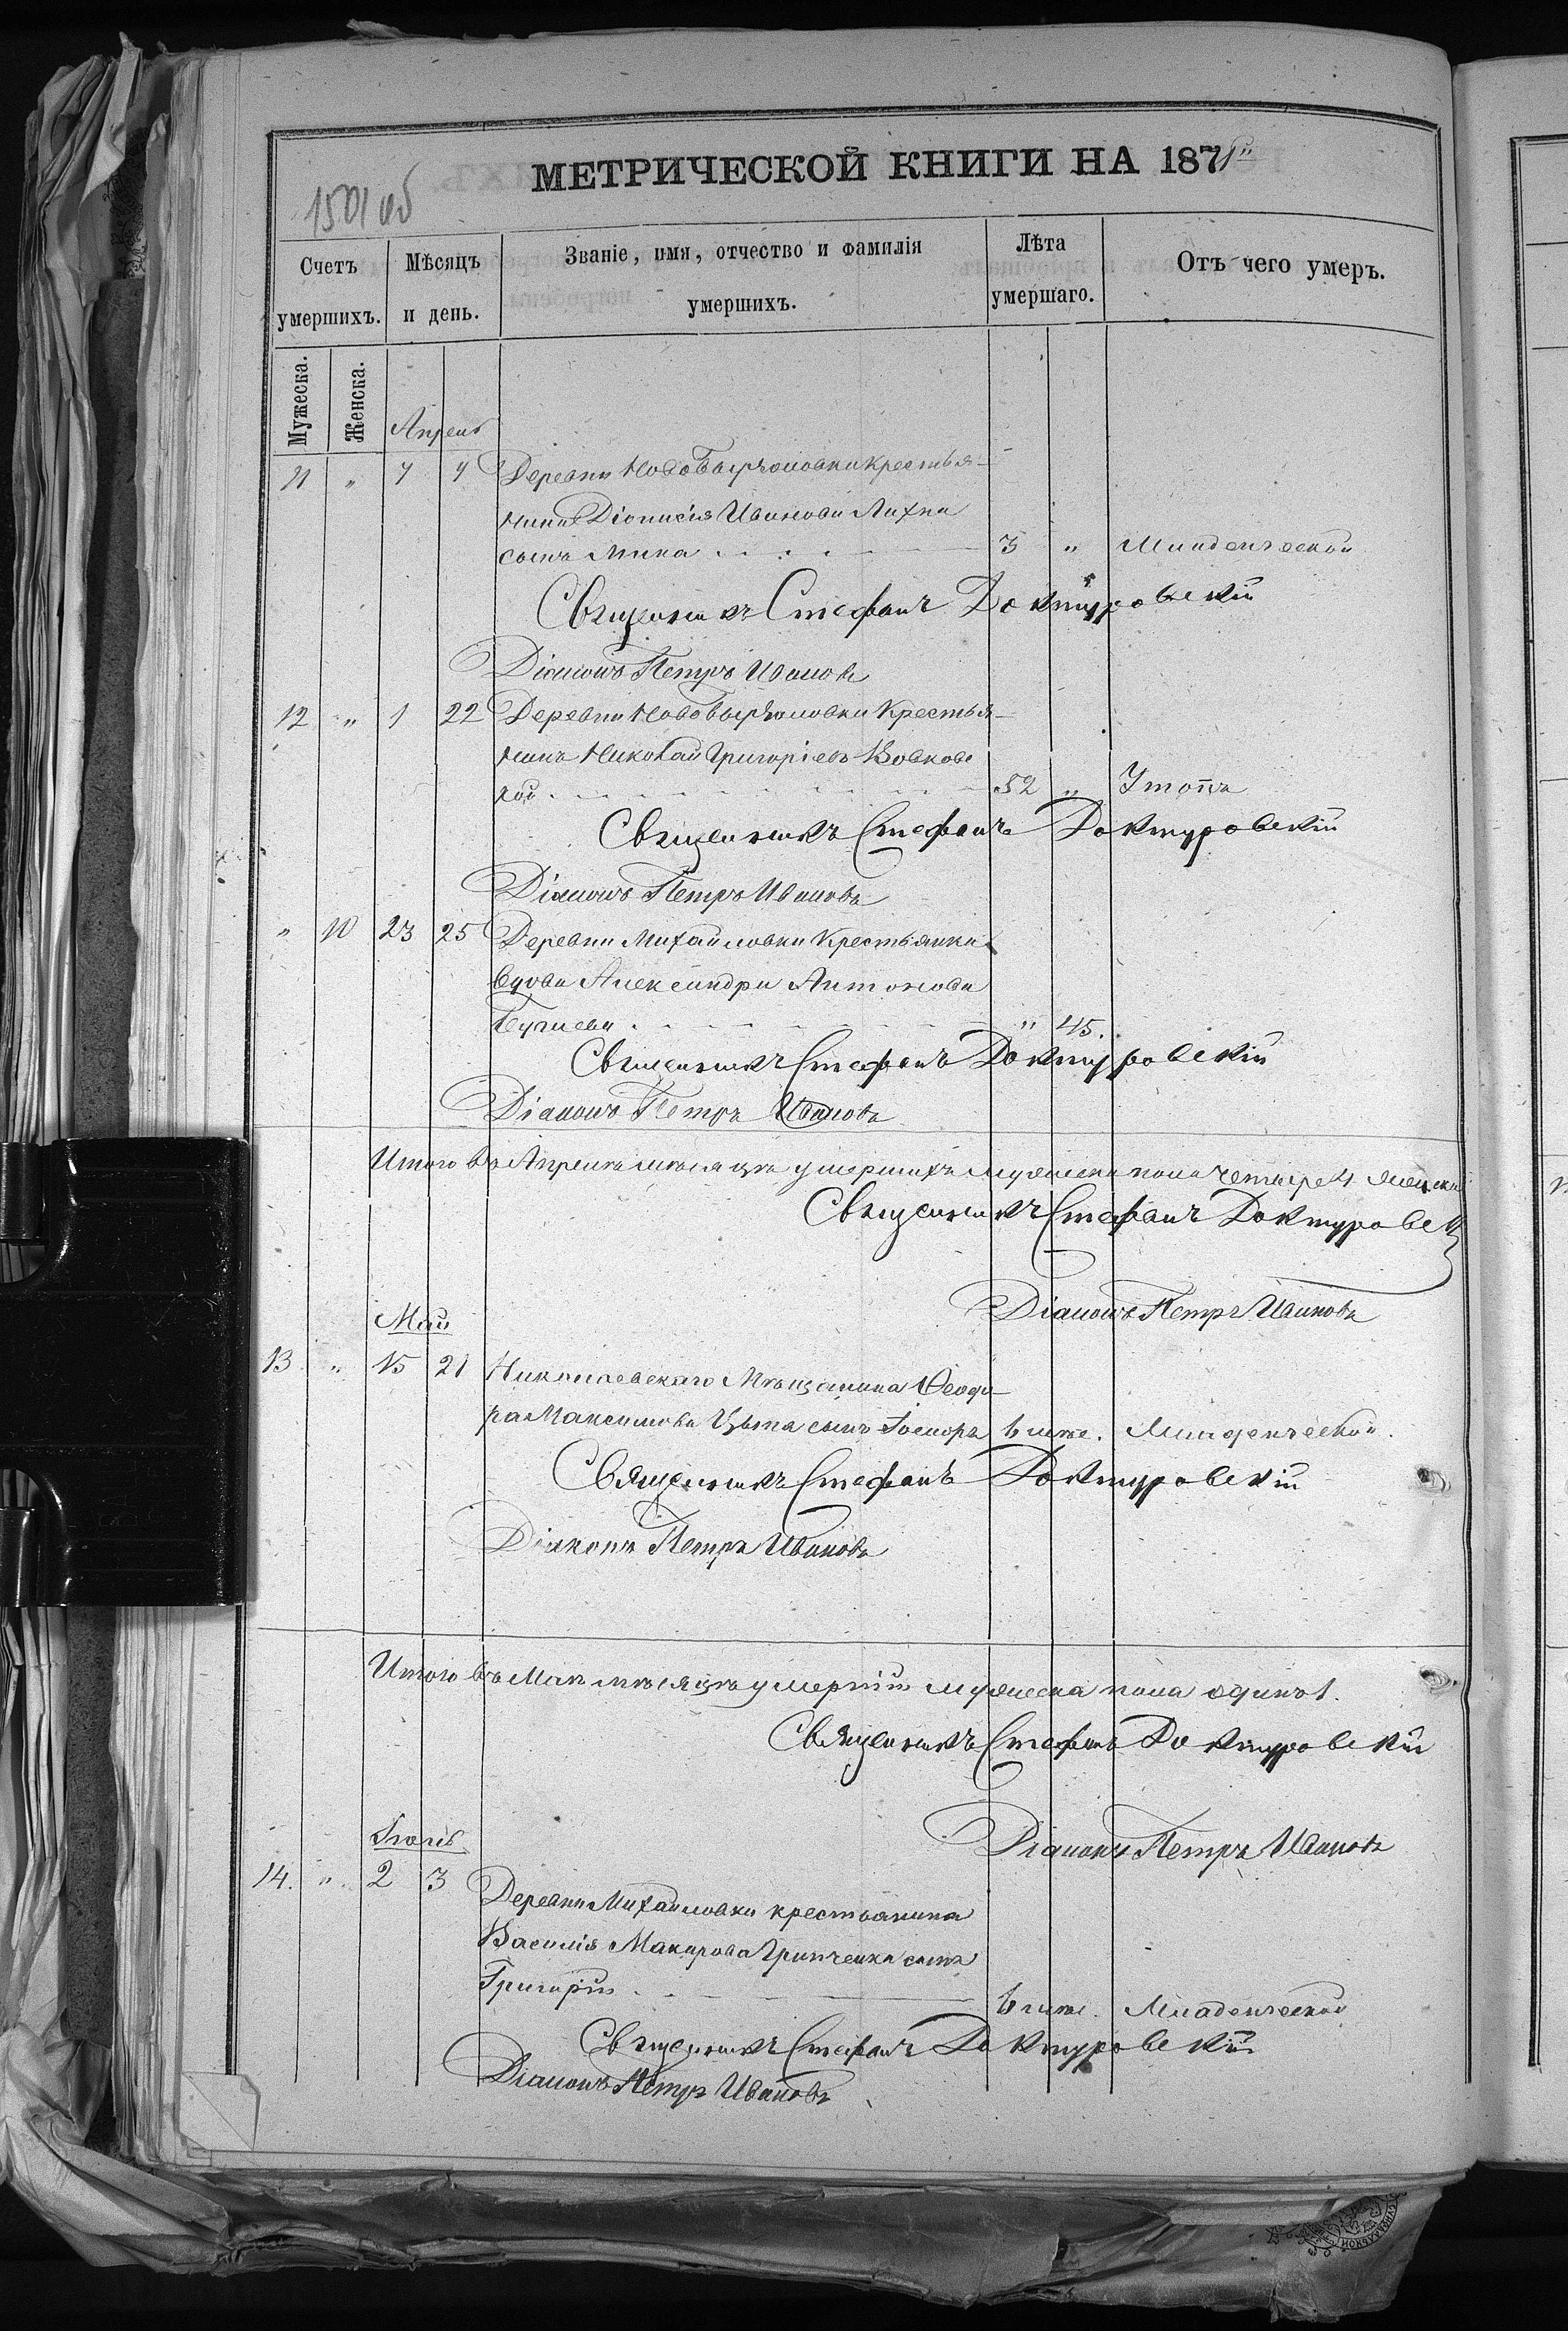 1501 об
МЕТРИЧЕСКОЙ КНИГИ НА 1871
Счетъ умершихъ.
Мѣсяцъ и день.
Званіе, имя, отчество и фамилія умершихъ.
Лѣта умершаго.
Отъ чего умеръ.
Мужеска.
Женска.
Апрель
11 " 7 7 Деревни крестья-
нина Діонисія Иванова Лихна
сынъ Мина 3 " Младенческой
Священникъ Стефанъ Доктуровскій
Діаконъ Петръ Ивановъ
12 " 1 22 Деревни Крестья-
нинъ Николай Григоріевъ
52 " Утопъ
Священникъ Стефанъ Доктуровскій
Діаконъ Петръ Ивановъ
" 10 23 25 Деревни Михайловки Крестьянка
вдова Александра Антонова
" 45.
Священникъ Стефанъ Доктуровскій
Діаконъ Петръ Ивановъ
Итого въ Апрелѣ мѣсяцѣ умершихъ мужеска пола четыре 4 женска
Священникъ Стефанъ Доктуровскі
Діаконъ Петръ Ивановъ
Май
13 " 15 21 Николаевскаго Мѣщанина Ѳеодо-
ра Максимова сынъ Младенческой.
Священникъ Стефанъ Доктуровскій
Діаконъ Петръ Ивановъ
Итого въ Маѣ мѣсяцѣ умершій мужеска пола одинъ 1.
Священникъ Стефанъ Доктуровскій
Діаконъ Петръ Ивановъ
14. " 2 3
Деревни Михайловки крестьянина
Василія Макарова Гринченка сынъ
Григорій Младенческой
Священникъ Стефанъ Доктуровскій
Діаконъ Петръ Ивановъ